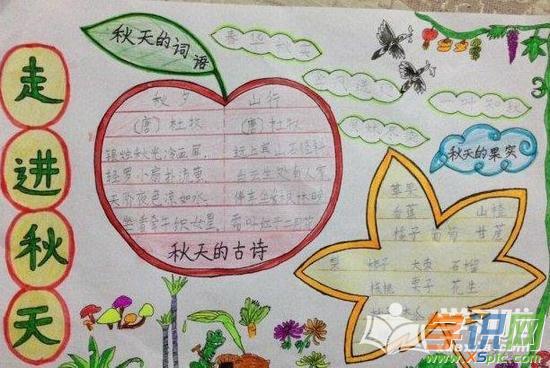 走进秋天
秋天的词语
春华秋实
一叶知秋
秋夕 山行
(唐)杜牧 (唐)杜牧
银烛秋光冷画屏, 远上寒山石径斜
轻罗小扇扑流萤 白云生处有人家
天阶夜色凉如水, 停车坐爱枫林晚
坐看牵牛织女星 霜叶红于二月花
秋天的古诗
秋天的果实
苹果
香蕉 山楂
桔子 葡萄 甘蔗
梨 柿子 大枣 石榴
核桃 栗子 花生
学识网